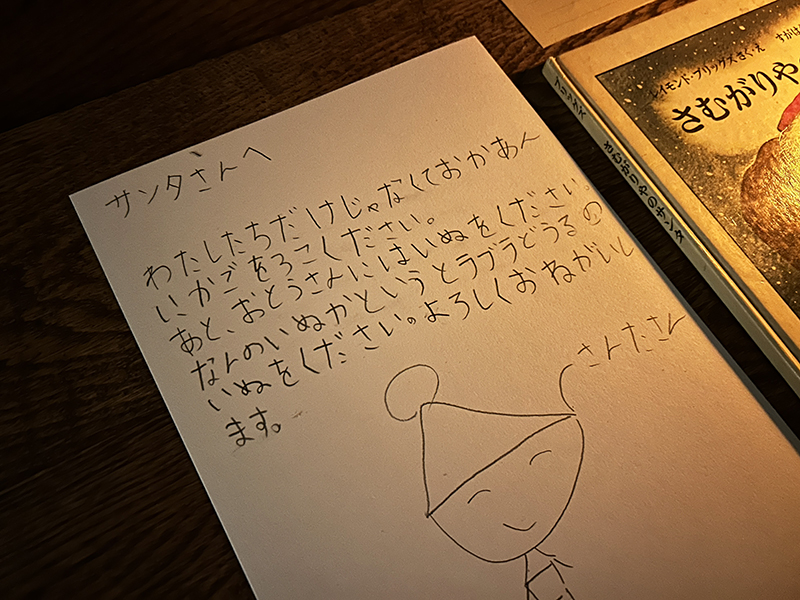 サンタさんへ
わたしたちだけじゃなくておかあん
いかごをろこください。
あと、おとうさんにはいぬをください。
なんのいぬかというとラブラどうるの
いぬをください。よろしくおねがいし
ます。
さんたさん
レイモンド・ブリッグズさく・え
すがは
さむがりや
さむがりやのサンタ